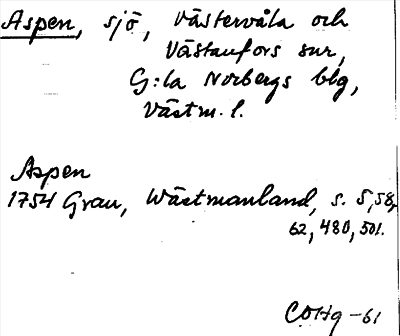 Aspen, sjö, Västervåla och
Västanfors snr,
G:la Norbergs blg,
Västm. l.
Aspen
1754 Grau, Wästmanland, s. 5, 58,
62, 480, 501.
COHg -61